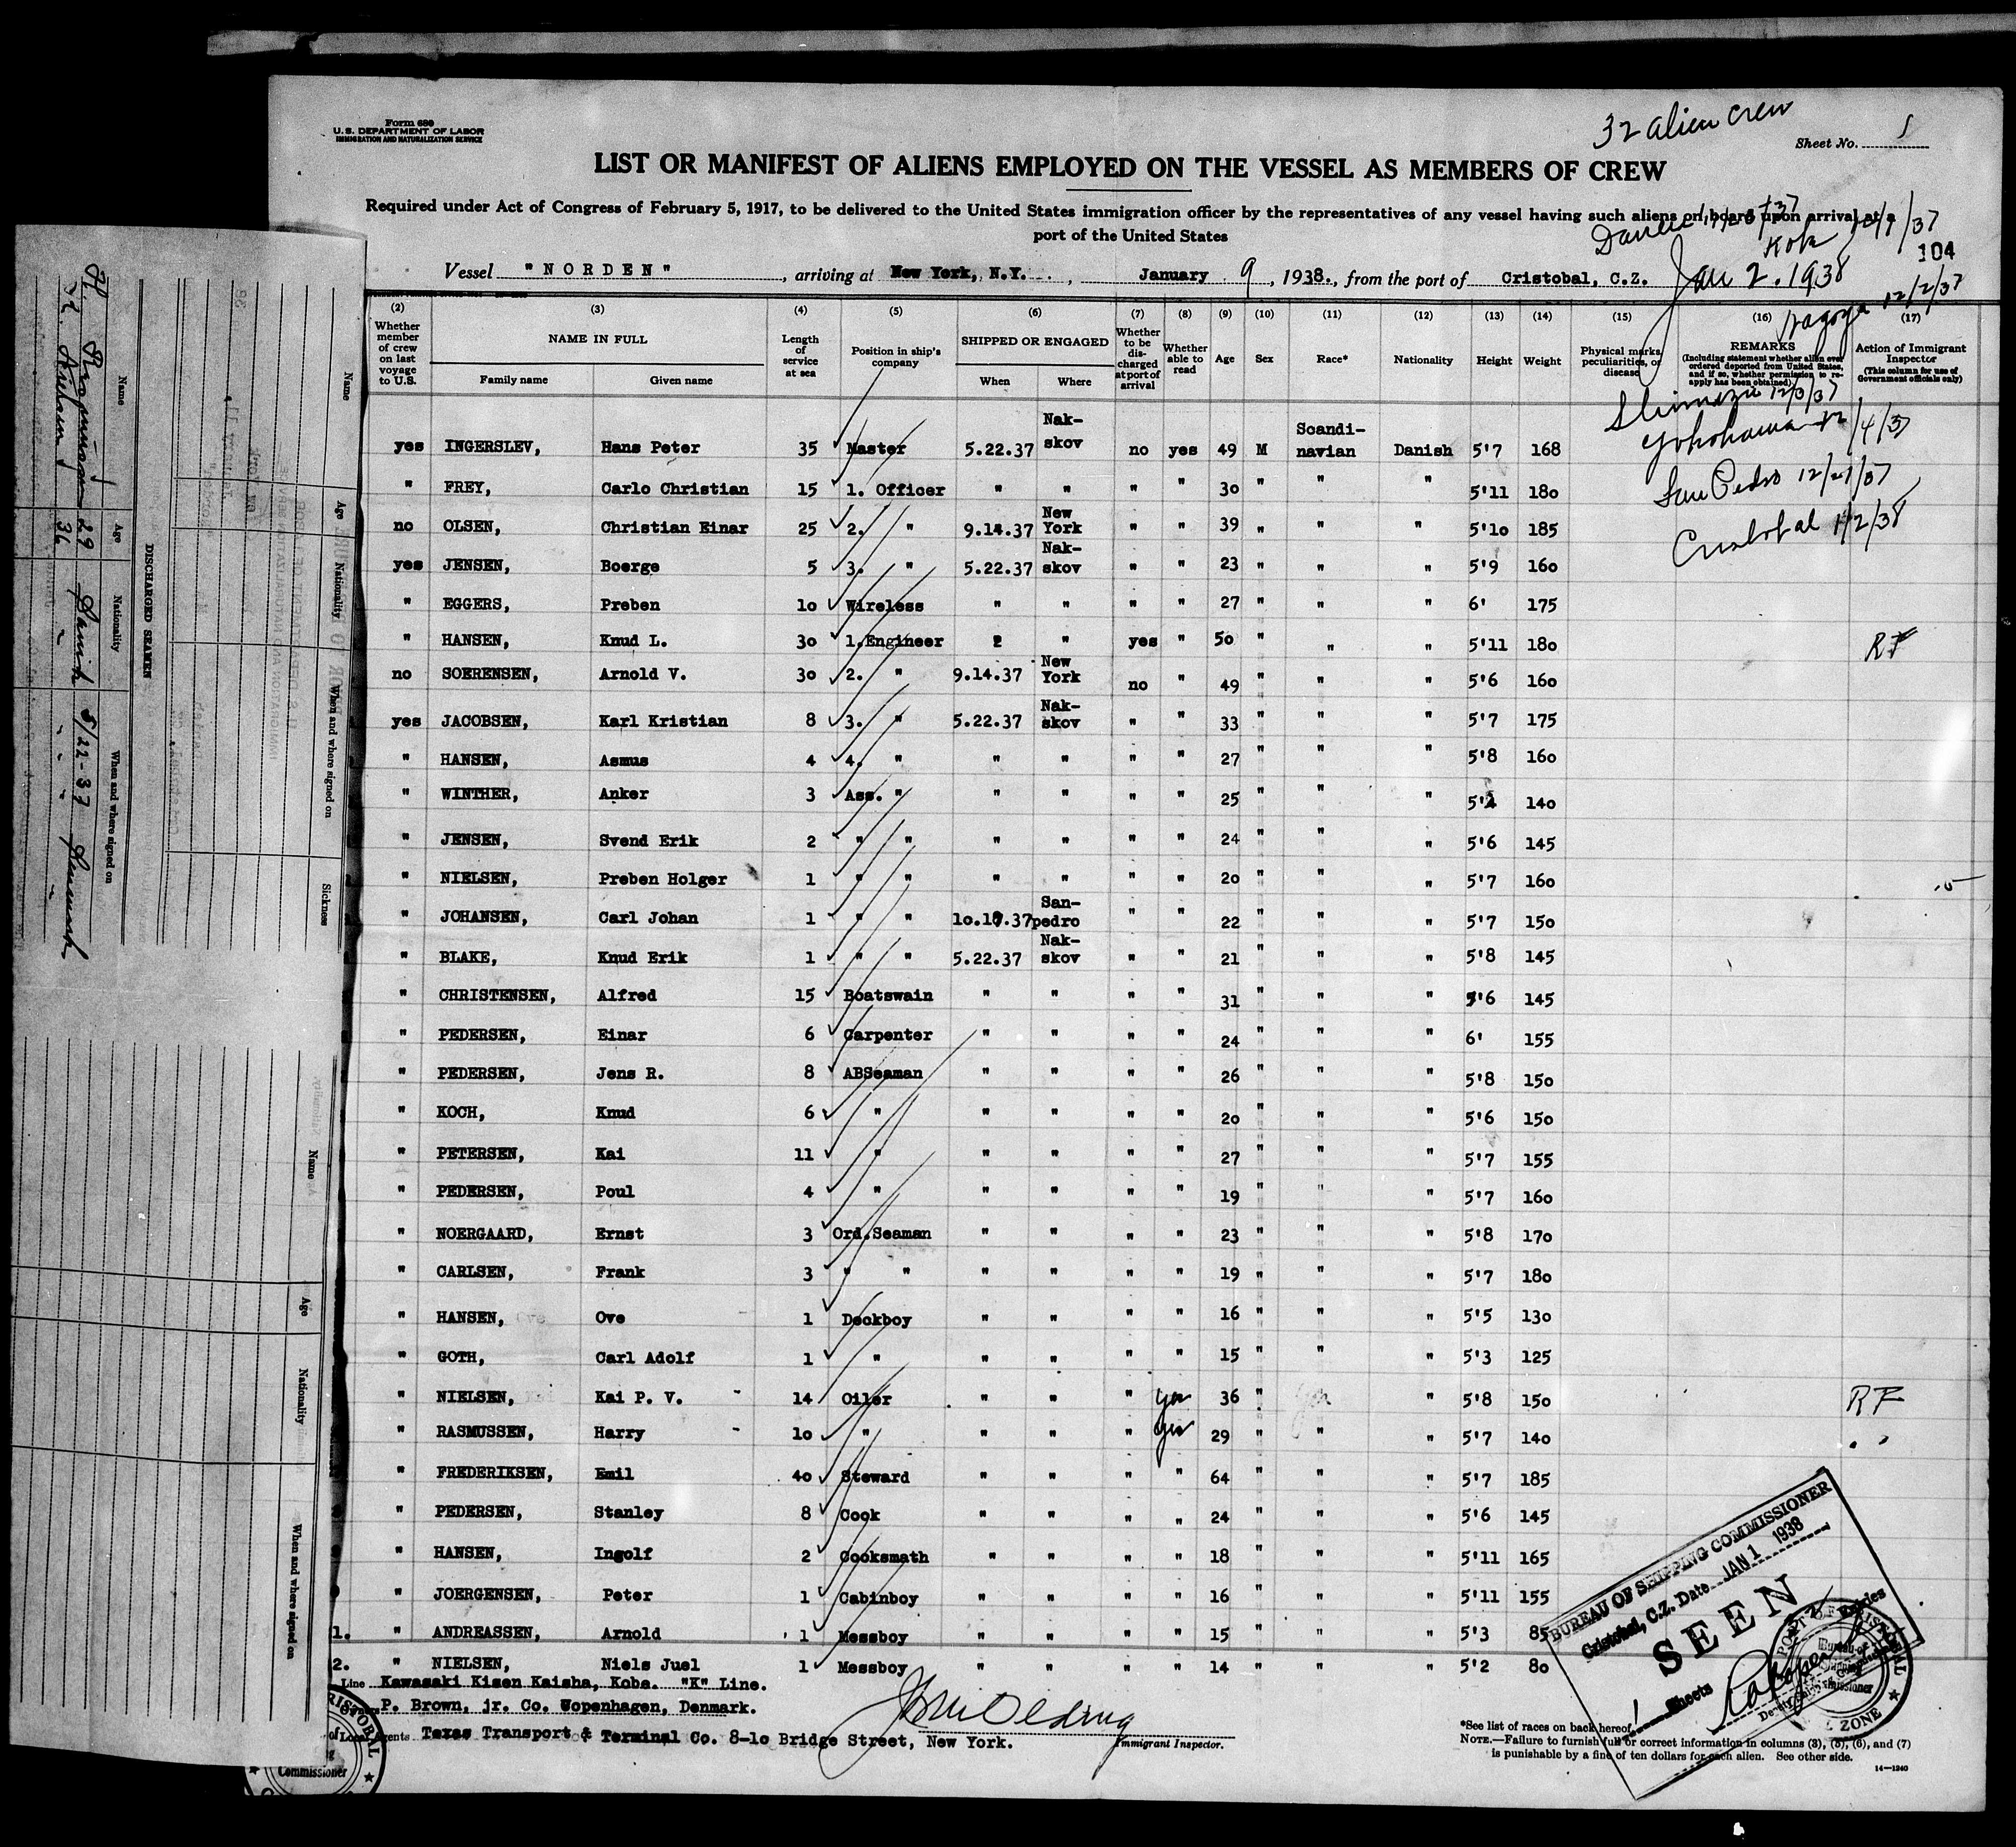 32 alien crew
Form 680
U. S. DEPARTMENT OF LABOR
IMMIGRATION AND NATURALIZATION SERVICE
Sheet No. 1
LIST OR MANIFEST OF ALIENS EMPLOYED ON THE VESSEL AS MEMBERS OF CREW
Required under Act of Congress of February 5, 1917, to be delivered to the United States immigration officer by the representatives of any vessel having such aliens on board upon arrival at a
port of the United States
104
Vessel "NORDEN", arriving at New York, N.Y., January 9, 1938., from the port of Cristobal, C.Z. Jan 2. 1938
Nagoya 12/2/37
(2) (3) (4) (5) (6) (7) (8) (9) (10) (11) (12) (13) (14) (15) (16) (17)
Whether member of crew on last voyage to U.S. NAME IN FULL Family name Given name Length of service at sea Position in ship's company SHIPPED OR ENGAGED When Where Whether to be discharged at port of arrival Whether able to read Age Sex Race* Nationality Height Weight Physical marks, peculiarities, or disease REMARKS (Including statement whether alien ever ordered deported from United States, and if so, whether permission to reapply has been obtained) Action of Immigrant Inspector (This column for use of Government officials only)
Shimizu 12/3/37
Yokohama 12/4/37
San Pedro 12/21/37
Cristobal 1/2/38
yes INGERSLEV, Hans Peter 35 Master 5.22.37 Nak-skov no yes 49 M Scandi-navian Danish 5'7 168
" FREY, Carlo Christian 15 1. Officer " " " " 30 " " 5'11 180
no OLSEN, Christian Einar 25 2. " 9.14.37 New York " " 39 " " " 5'10 185
yes JENSEN, Boerge 5 3. " 5.22.37 Nak-skov " " 23 " " " 5'9 160
" EGGERS, Preben 10 Wireless " " " " 27 " " " 6' 175
" HANSEN, Knud L. 30 1.Engineer " " yes " 50 " " " 5'11 180 RF
no SOERENSEN, Arnold V. 30 2. " 9.14.37 New York no " 49 " " " 5'6 160
yes JACOBSEN, Karl Kristian 8 3. " 5.22.37 Nak-skov " " 33 " " " 5'7 175
" HANSEN, Asmus 4 4. " " " " " 27 " " " 5'8 160
" WINTHER, Anker 3 Ass. " " " " " 25 " " " 5'4 140
" JENSEN, Svend Erik 2 " " " " " " 24 " " " 5'6 145
" NIELSEN, Preben Holger 1 " " " " " " 20 " " " 5'7 160
" JOHANSEN, Carl Johan 1 " " 10.17.37 San-pedro " " 22 " " " 5'7 150
" BLAKE, Knud Erik 1 " " 5.22.37 Nak-skov " " 21 " " " 5'8 145
" CHRISTENSEN, Alfred 15 Boatswain " " " " 31 " " " 5'6 145
" PEDERSEN, Einar 6 Carpenter " " " " 24 " " " 6' 155
" PEDERSEN, Jens R. 8 ABSeaman " " " " 26 " " " 5'8 150
" KOCH, Knud 6 " " " " " 20 " " " 5'6 150
" PETERSEN, Kai 11 " " " " " 27 " " " 5'7 155
" PEDERSEN, Poul 4 " " " " " 19 " " " 5'7 160
" NOERGAARD, Ernst 3 Ord.Seaman " " " " 23 " " " 5'8 170
" CARLSEN, Frank 3 " " " " " " 19 " " " 5'7 180
" HANSEN, Ove 1 Deckboy " " " " 16 " " " 5'5 130
" GOTH, Carl Adolf 1 " " " " " 15 " " " 5'3 125
" NIELSEN, Kai P. V. 14 Oiler " " " yes 36 " " " 5'8 150 RF
" RASMUSSEN, Harry 10 " " " " yes 29 " " " 5'7 140 " "
" FREDERIKSEN, Emil 40 Steward " " " " 64 " " " 5'7 185
" PEDERSEN, Stanley 8 Cook " " " " 24 " " " 5'6 145
" HANSEN, Ingolf 2 Cooksmath " " " " 18 " " " 5'11 165
" JOERGENSEN, Peter 1 Cabinboy " " " " 16 " " " 5'11 155
1. " ANDREASSEN, Arnold 1 Messboy " " " " 15 " " " 5'3 85
2. " NIELSEN, Niels Juel 1 Messboy " " " " 14 " " " 5'2 80
Line Kawasaki Kisen Kaisha, Kobe. "K" Line.
P. Brown, jr. Co. Copenhagen, Denmark.
Local Agents Texas Transport & Terminal Co. 8-10 Bridge Street, New York.
Immigrant Inspector.
*See list of races on back hereof.
NOTE.—Failure to furnish full or correct information in columns (3), (5), (6), and (7)
is punishable by a fine of ten dollars for each alien. See other side.
14—1240
BUREAU OF SHIPPING COMMISSIONER
Cristobal, C.Z. Date JAN 1 1938
SEEN
1 Sheets
Commissioner
DISCHARGED SEAMEN
Name Age Nationality When and where signed on
H. Rasmussen 29 Danish 5/22-37
K. Nielsen 36 " " "
Name Age Nationality When and where signed on Sickness
Name Age Nationality When and where signed on